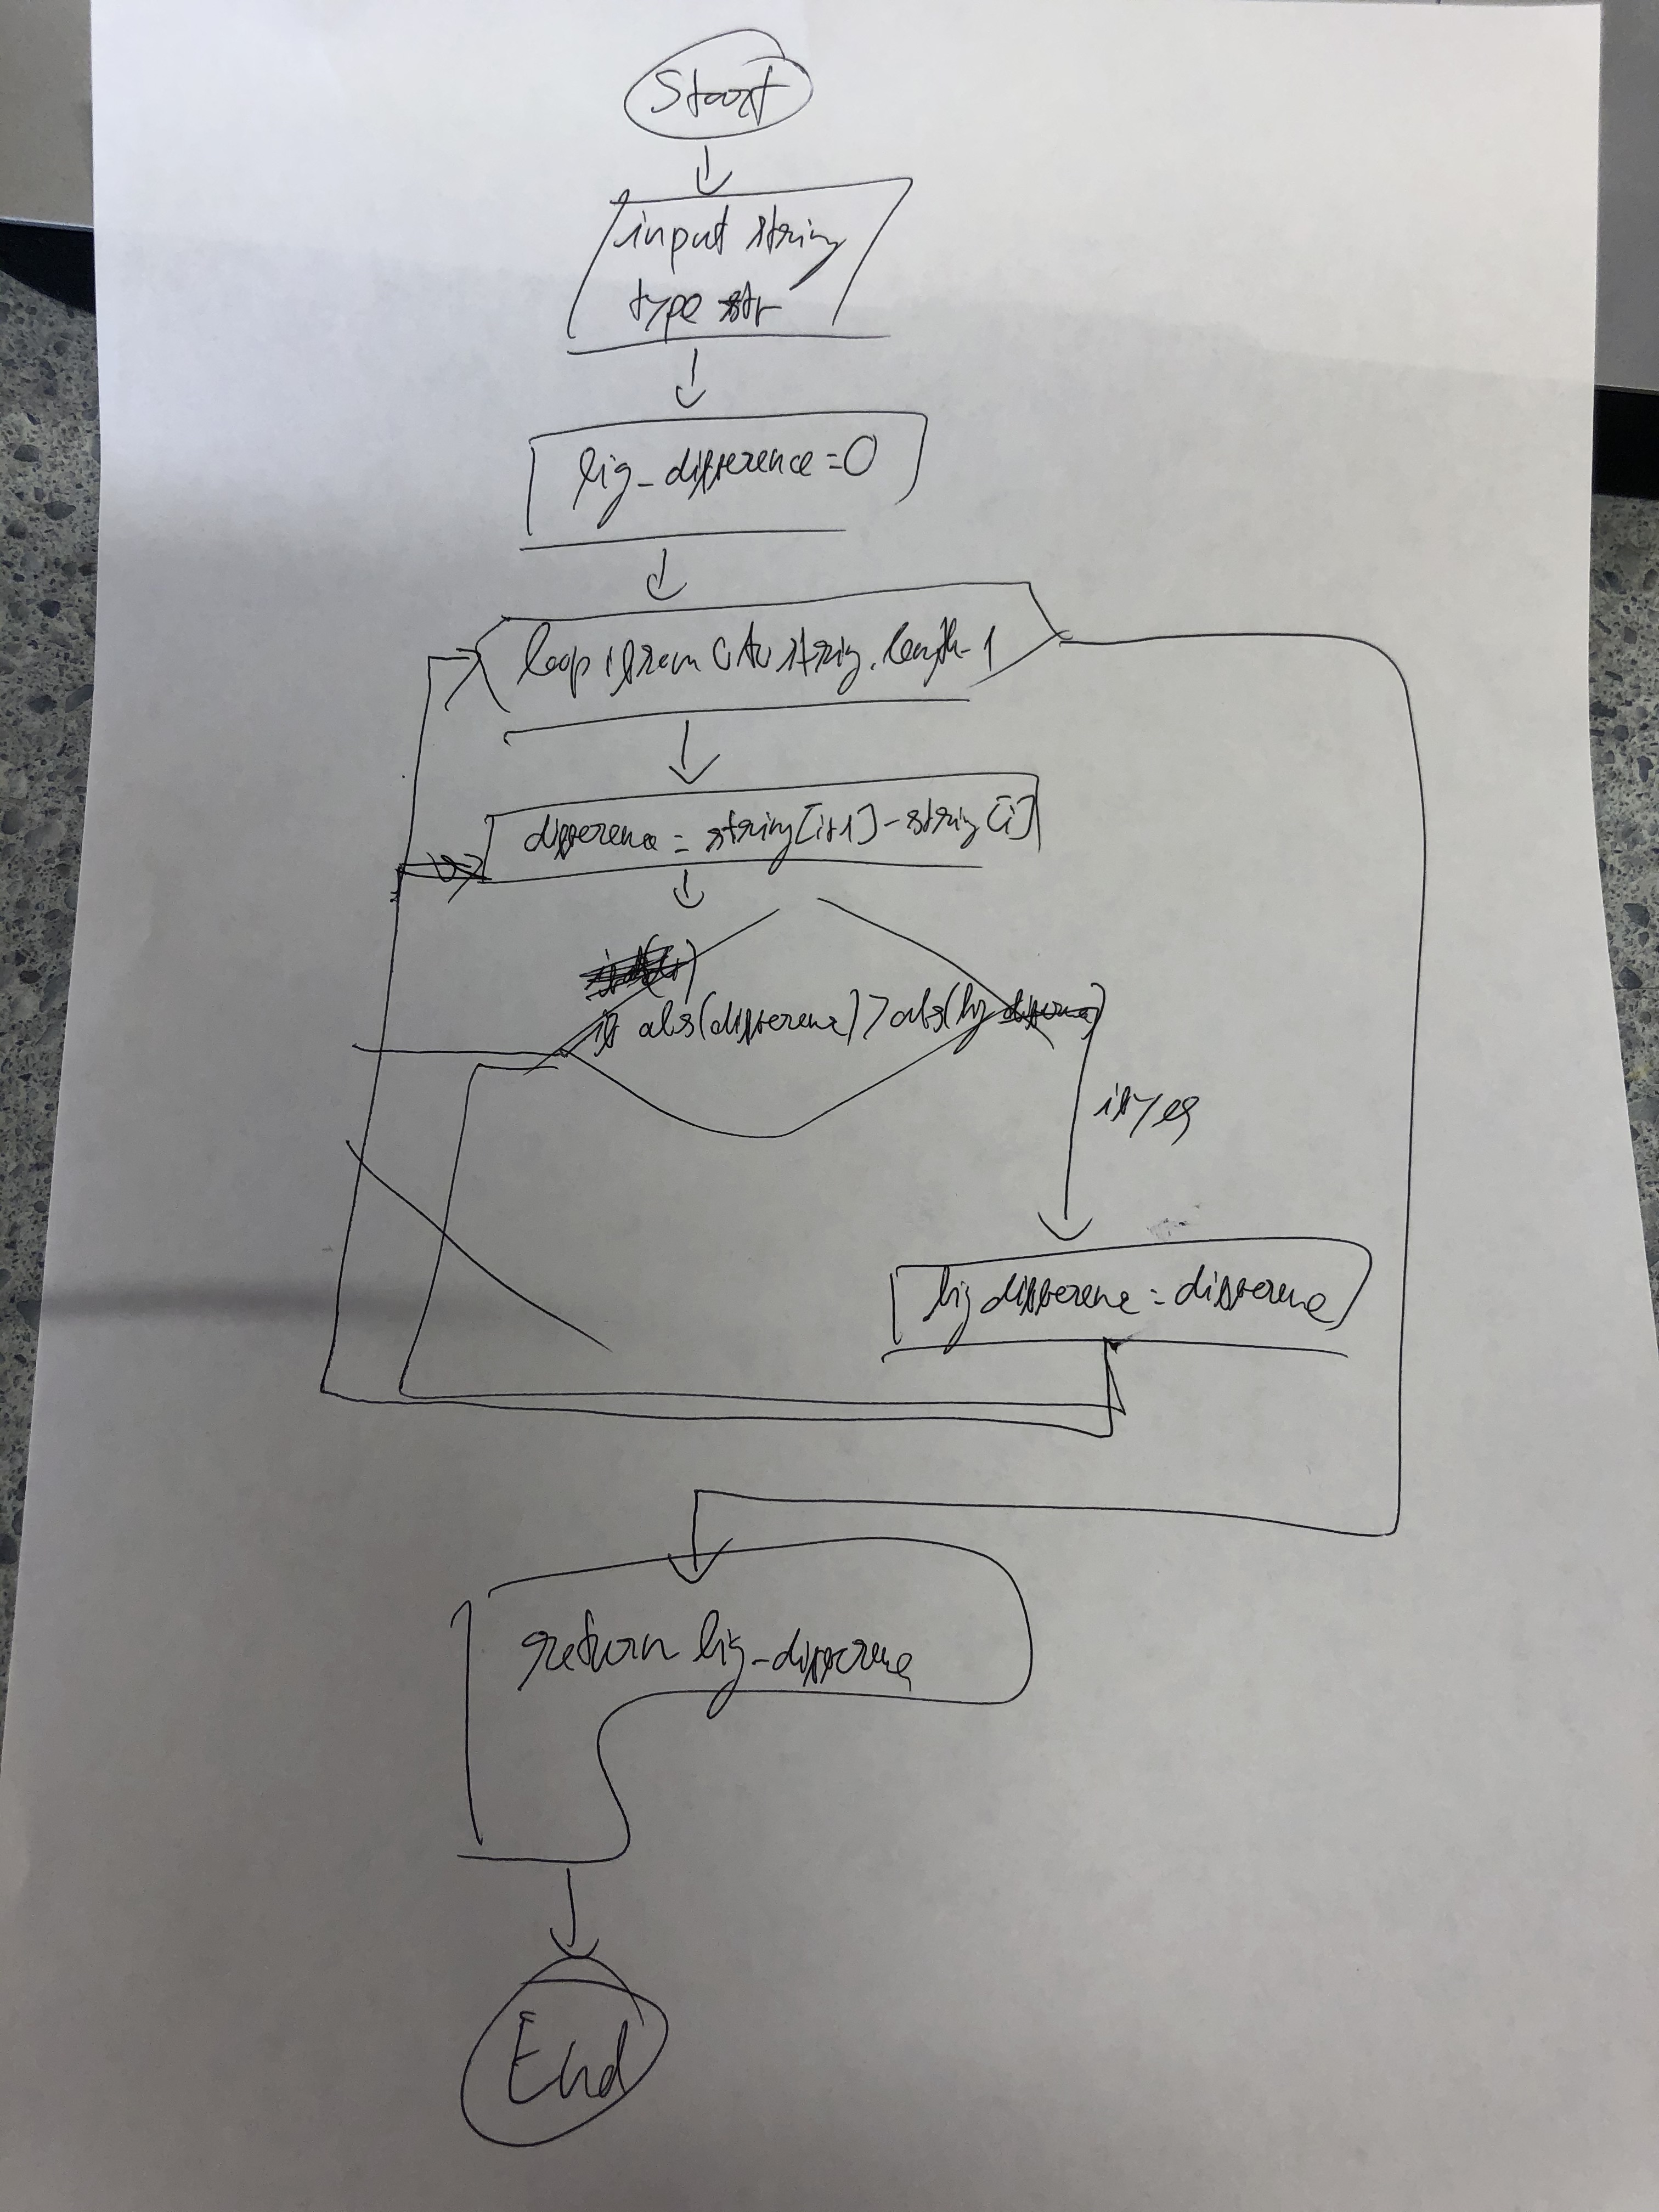 Start
input string
type str
big_difference = 0
loop i from 0 to string.length-1
difference = string[i+1] - string[i]
if abs(difference) > abs(big difference)
if yes
big difference = difference
return big_difference
End